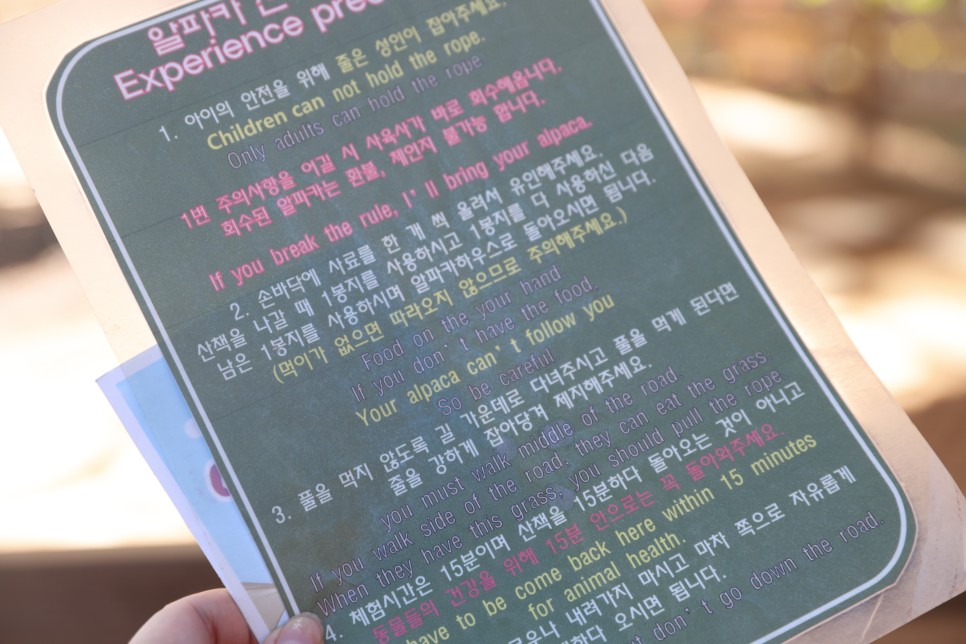 알파카
Experience
1. 아이의 안전을 위해 줄은 성인이 잡아주세요.
Children can not hold the rope.
Only adults can hold the rope
1번 주의사항을 어길 시 사육사가 바로 회수해옵니다.
회수된 알파카는 환불, 체인지 불가능 합니다.
If you break the rule, I' ll bring your alpaca.
2. 손바닥에 사료를 한 개 씩 올려서 유인해주세요.
산책을 나갈 때 1봉지를 사용하시고 1봉지를 다 사용하신 다음
남은 1봉지를 사용하시며 알파카하우스로 돌아오시면 됩니다.
(먹이가 없으면 따라오지 않으므로 주의해주세요.)
Food on the your hand
If you don' t have the food.
Your alpaca can' t follow you
So be careful
3. 풀을 먹지 않도록 길 가운데로 다녀주시고 풀을 먹게 된다면
줄을 강하게 잡아당겨 제지해주세요.
you must walk middle of the road.
If you walk side of the road, they can eat the grass
When they have this grass, you should pull the rope
4. 체험시간은 15분이며 산책을 15분하다 돌아오는 것이 아니고
동물들의 건강을 위해 15분 안으로는 꼭 돌아와주세요.
have to be come back here within 15 minutes
for animal health.
내려가지 마시고 마차 쪽으로 자유롭게
오시면 됩니다.
don' t go down the road.